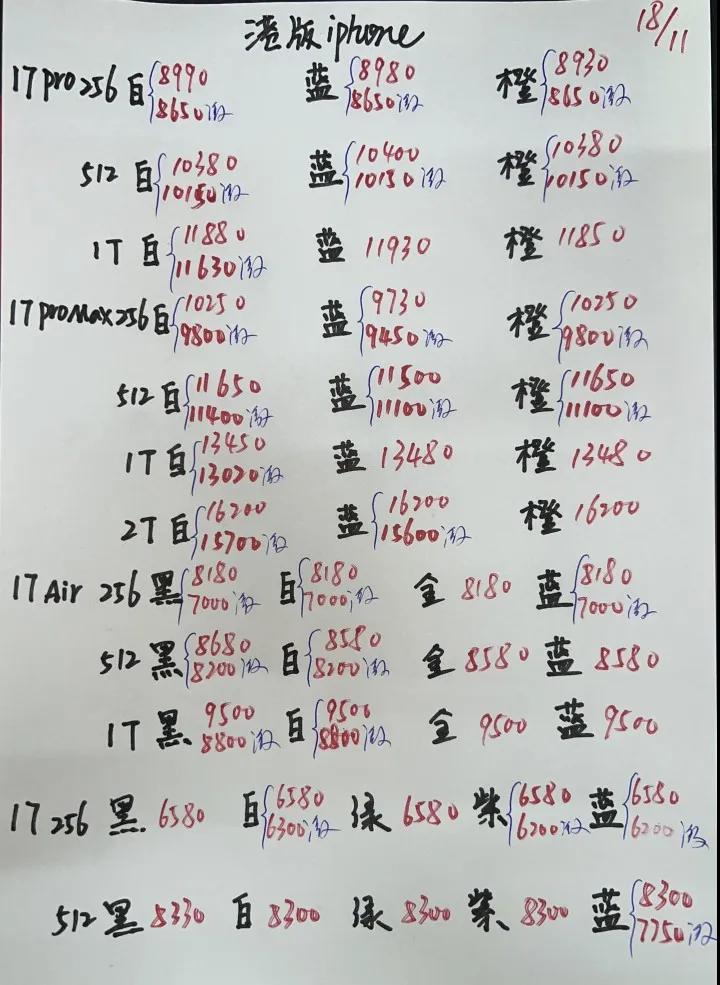 港版iphone 18/11
17pro256 白 8990 蓝 8980 橙 8930
8650激 8650激 8650激
512 白 10380 蓝 10400 橙 10380
10150激 10150激 10150激
1T 白 11880 蓝 11930 橙 11850
11630激
17proMax256 白 10250 蓝 9730 橙 10250
9800激 9450激 9800激
512 白 11650 蓝 11500 橙 11650
11400激 11100激 11100激
1T 白 13450 蓝 13480 橙 13480
13020激
2T 白 16200 蓝 16200 橙 16200
15700激 15600激
17Air 256 黑 8180 白 8180 金 8180 蓝 8180
7000激 7000激 7000激
512 黑 8680 白 8580 金 8580 蓝 8580
8200激 8200激
1T 黑 9500 白 9500 金 9500 蓝 9500
8800激 8800激
17 256 黑 6580 白 6580 绿 6580 紫 6580 蓝 6580
6300激 6200激 6200激
512 黑 8330 白 8300 绿 8300 紫 8300 蓝 8300
7750激